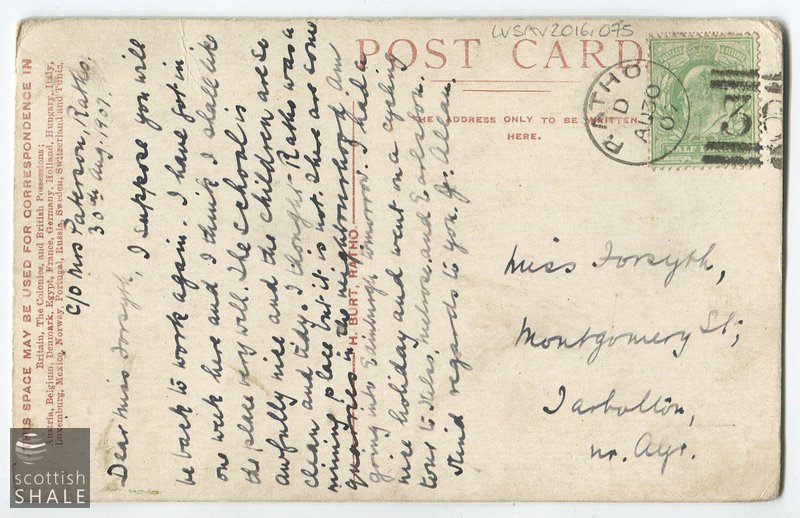 LVSAV2016.075
POST CARD
THE ADDRESS ONLY TO BE WRITTEN
HERE.
RATHO
D
AU 30
07
HALF
THIS SPACE MAY BE USED FOR CORRESPONDENCE IN
Britain, The Colonies, and British Possessions;
Austria, Belgium, Denmark, Egypt, France, Germany, Holland, Hungary, Italy,
Luxemburg, Mexico, Norway, Portugal, Russia, Sweden, Switzerland and Tunis.
c/o Mrs Paterson, Ratho,
30th Aug. 1907.
Dear Miss Forsyth, I suppose you will
be back to work again. I have got in
one week here and I think I shall like
the place very well. The school is
awfully nice and the children are so
clean and tidy. I thought Ratho was a
mining place but it is not. There are some
quarries in the neighbourhood. Am
going into Edinburgh tomorrow. I had a
nice holiday and went on a cycling
tour to Kelso, Melrose, and Earlston.
Kind regards to you. J. Allan.
H. BURT, RATHO.
Miss Forsyth,
Montgomery St;
Tarbolton,
nr. Ayr.
scottish
SHALE